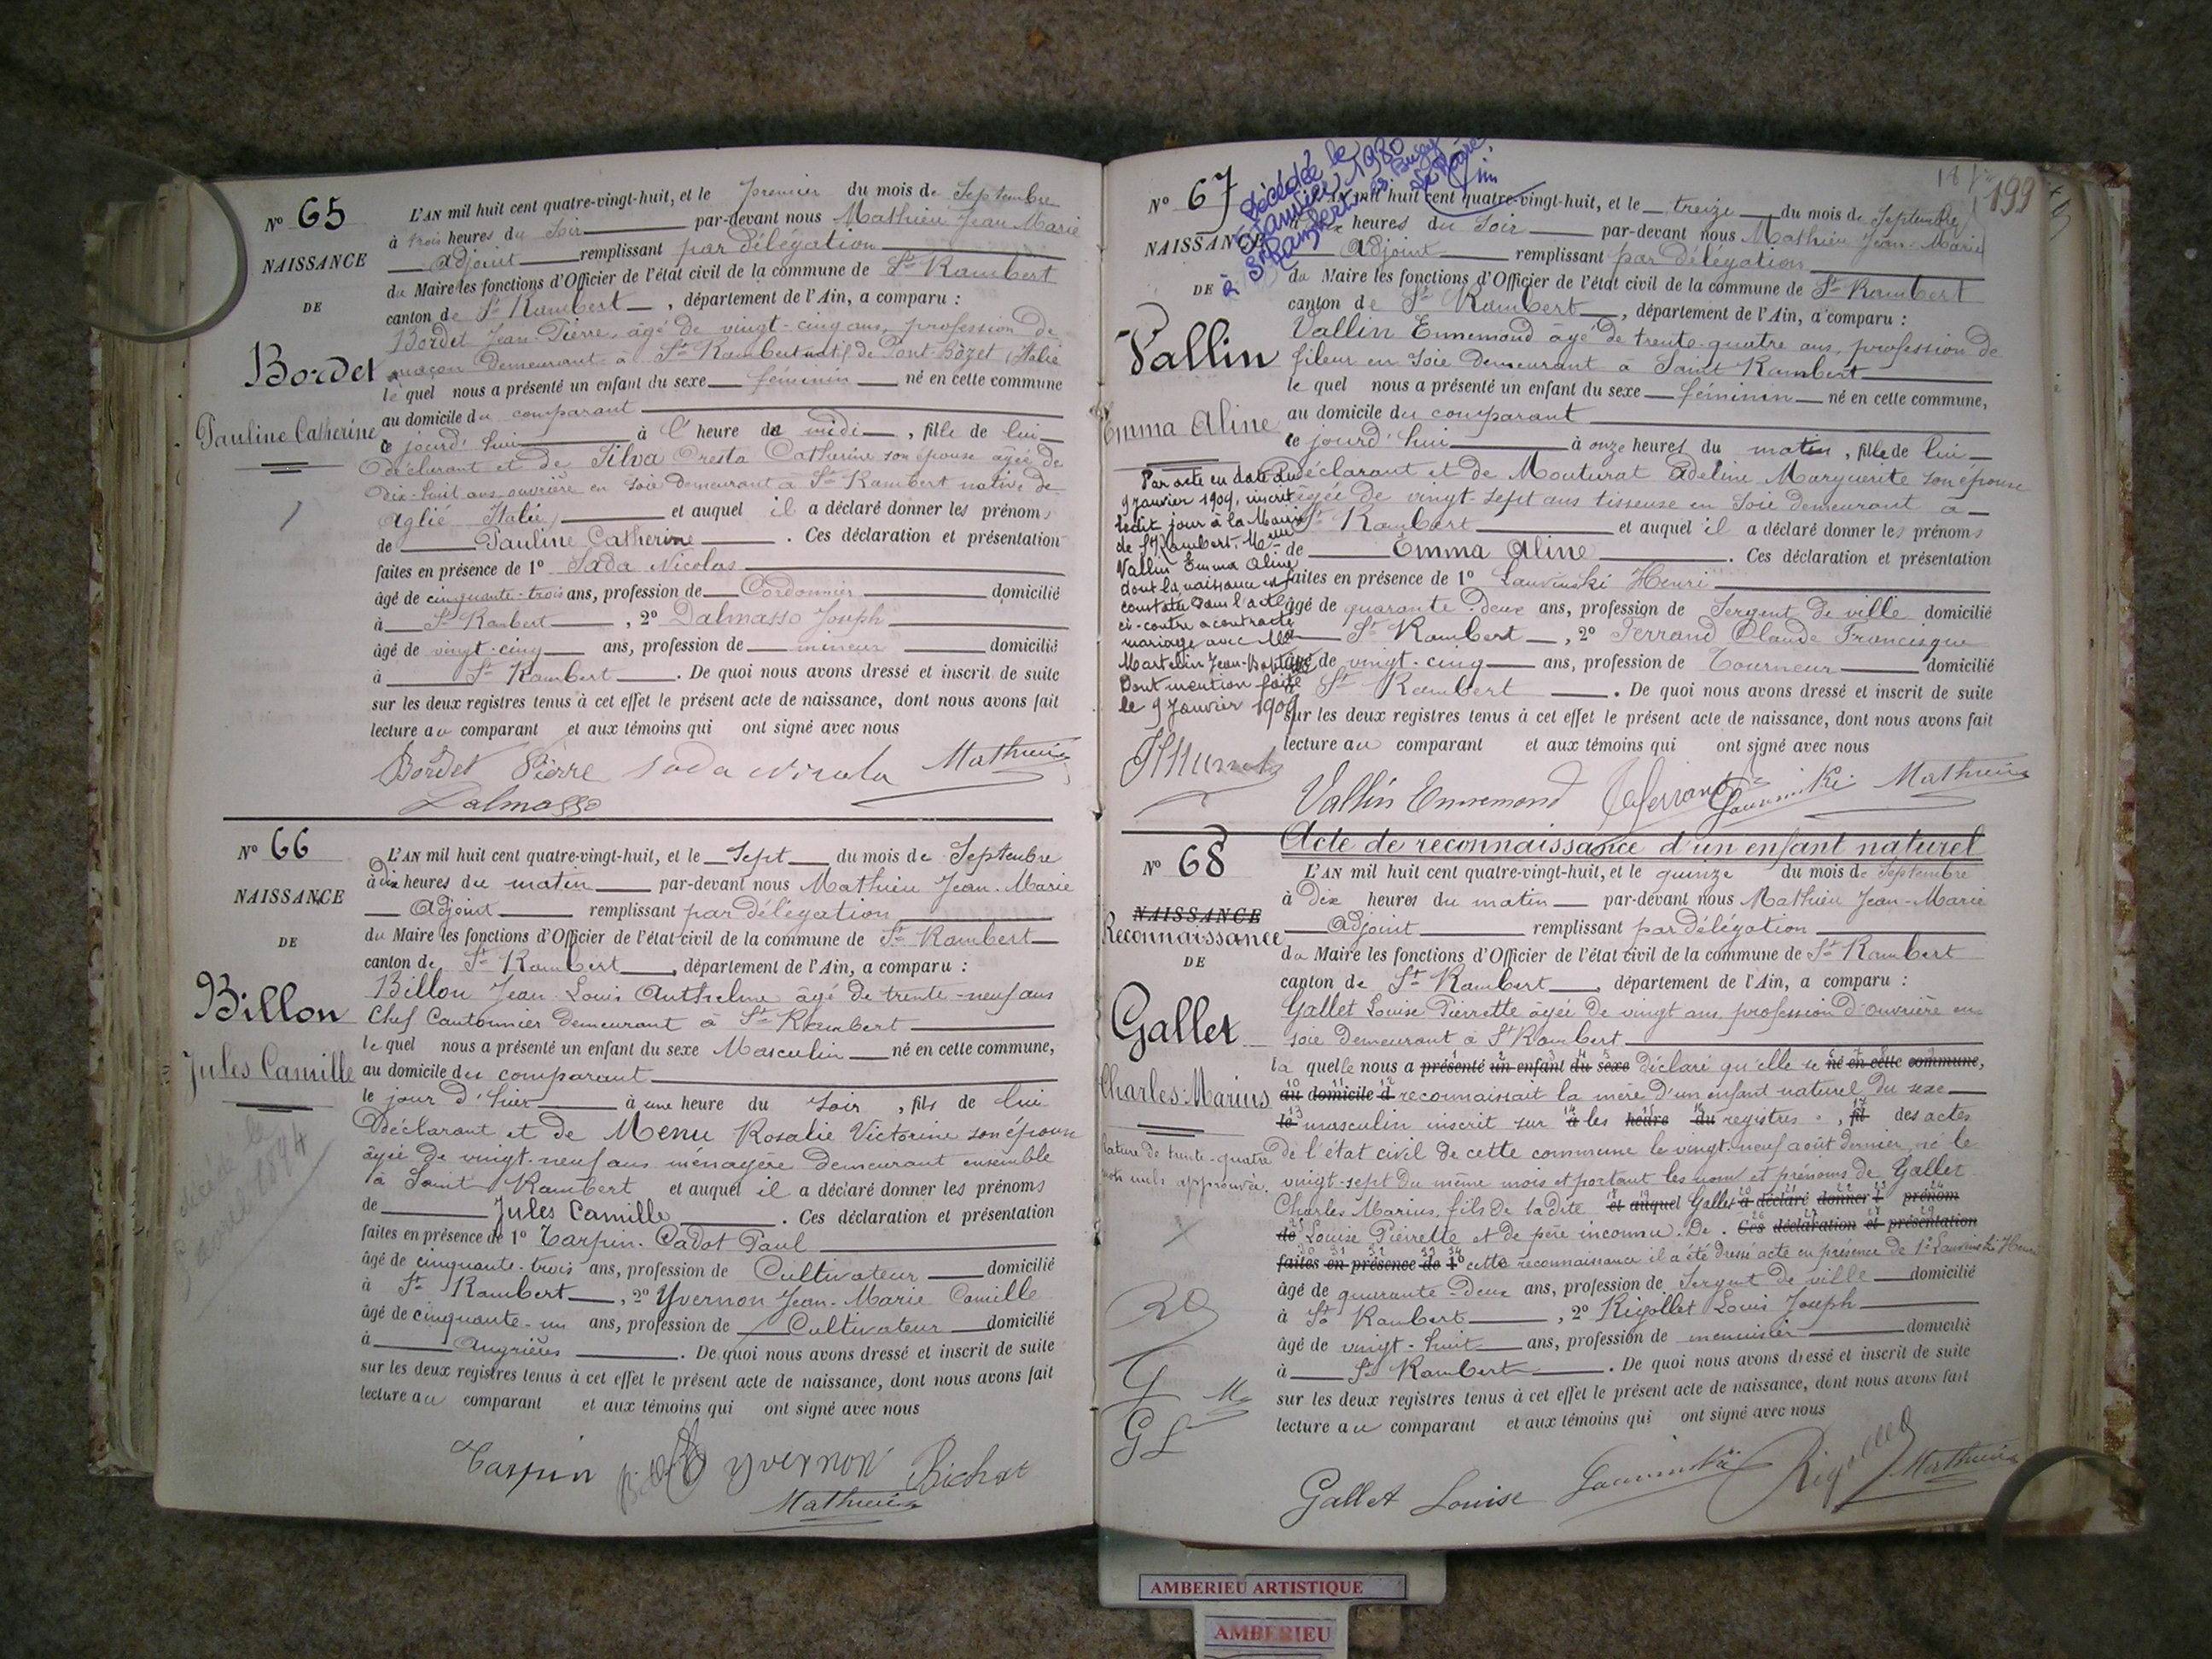 N° 65
NAISSANCE
DE
Bordet
Pauline Catherine
L'AN mil huit cent quatre-vingt-huit, et le premier du mois de Septembre
à trois heures du Soir par-devant nous Mathieu Jean Marie
Adjoint remplissant par délégation
du Maire les fonctions d'Officier de l'état civil de la commune de St Rambert
canton de St Rambert, département de l'Ain, a comparu :
Bordet Jean-Pierre, âgé de vingt-cinq ans, profession de
maçon demeurant à St Rambert natif de Pont Bozet Italie
le quel nous a présenté un enfant du sexe féminin né en cette commune
au domicile du comparant
ce jourd'hui à l'heure de midi, fille de lui
déclarant et de Silva Oresta Catherine son épouse âgée de
dix-huit ans ouvrière en soie demeurant à St Rambert native de
Aglié Italie et auquel il a déclaré donner les prénoms
de Pauline Catherine. Ces déclaration et présentation
faites en présence de 1° Sada Nicolas
âgé de cinquante-trois ans, profession de Cordonnier domicilié
à St Rambert, 2° Dalmasso Joseph
âgé de vingt-cinq ans, profession de mineur domicilié
à St Rambert. De quoi nous avons dressé et inscrit de suite
sur les deux registres tenus à cet effet le présent acte de naissance, dont nous avons fait
lecture au comparant et aux témoins qui ont signé avec nous
Bordet Pierre Sada Nicola Mathieu
Dalmasso
N° 66
NAISSANCE
DE
Billon
Jules Camille
décédé le
avril 1894
L'AN mil huit cent quatre-vingt-huit, et le Sept du mois de Septembre
à dix heures du matin par-devant nous Mathieu Jean-Marie
Adjoint remplissant par délégation
du Maire les fonctions d'Officier de l'état civil de la commune de St Rambert
canton de St Rambert, département de l'Ain, a comparu :
Billon Jean Louis Anthelme âgé de trente-neuf ans
Chef Cantonnier demeurant à St Rambert
le quel nous a présenté un enfant du sexe Masculin né en cette commune,
au domicile du comparant
le jour d'hier à une heure du soir, fils de lui
Déclarant et de Menu Rosalie Victorine son épouse
âgée de vingt-neuf ans ménagère demeurant ensemble
à Saint Rambert et auquel il a déclaré donner les prénoms
de Jules Camille. Ces déclaration et présentation
faites en présence de 1° Tarpin-Cadot Paul
âgé de cinquante-trois ans, profession de Cultivateur domicilié
à St Rambert, 2° Yvernon Jean-Marie Camille
âgé de cinquante-un ans, profession de Cultivateur domicilié
à Angrières. De quoi nous avons dressé et inscrit de suite
sur les deux registres tenus à cet effet le présent acte de naissance, dont nous avons fait
lecture au comparant et aux témoins qui ont signé avec nous
Tarpin Yvernon
Mathieu
199
N° 67
NAISSANCE
DE
Vallin
Emma Aline
Décédée le
Janvier 1980
à St Rambert en Bugey
Par acte en date du
9 janvier 1909, inscrit
ledit jour à la Mairie
de St Rambert, Melle
Vallin Emma Aline
dont la naissance est
constatée dans l'acte
ci-contre a contracté
mariage avec Mr
Martelin Jean-Baptiste
Dont mention faite
le 9 Janvier 1909
L'AN mil huit cent quatre-vingt-huit, et le treize du mois de Septembre
heures du Soir par-devant nous Mathieu Jean-Marie
Adjoint remplissant par délégation
du Maire les fonctions d'Officier de l'état civil de la commune de St Rambert
canton de St Rambert, département de l'Ain, a comparu :
Vallin Ennemond âgé de trente-quatre ans, profession de
fileur en soie demeurant à Saint Rambert
le quel nous a présenté un enfant du sexe féminin né en cette commune,
au domicile du comparant
ce jourd'hui à onze heures du matin, fille de lui
déclarant et de Mouturat Adeline Marguerite son épouse
âgée de vingt-sept ans tisseuse en soie demeurant à
St Rambert et auquel il a déclaré donner les prénoms
de Emma Aline. Ces déclaration et présentation
faites en présence de 1° Lauvinski Henri
âgé de quarante-deux ans, profession de Sergent de ville domicilié
St Rambert, 2° Ferrand Claude Francisque
âgé de vingt-cinq ans, profession de Tourneur domicilié
St Rambert. De quoi nous avons dressé et inscrit de suite
sur les deux registres tenus à cet effet le présent acte de naissance, dont nous avons fait
lecture au comparant et aux témoins qui ont signé avec nous
Vallin Ennemond Ferrand Lauvinski Mathieu
N° 68
NAISSANCE
Reconnaissance
DE
Gallet
Charles-Marius
Rature de trente-quatre
mots nuls approuvée.
Acte de reconnaissance d'un enfant naturel
L'AN mil huit cent quatre-vingt-huit, et le quinze du mois de Septembre
à Dix heures du matin par-devant nous Mathieu Jean-Marie
Adjoint remplissant par délégation
du Maire les fonctions d'Officier de l'état civil de la commune de St Rambert
canton de St Rambert, département de l'Ain, a comparu :
Gallet Louise Pierrette âgée de vingt ans, profession d'ouvrière en
soie demeurant à St Rambert
la quelle nous a présenté un enfant du sexe déclaré qu'elle se né en cette commune,
au domicile d reconnaissait la mère d'un enfant naturel du sexe
le masculin inscrit sur à les heure du registres, fil des actes
de l'état civil de cette commune le vingt-neuf août dernier, né le
vingt-sept du même mois et portant les nom et prénoms de Gallet
Charles Marius, fils de la dite et auquel Gallet a déclaré donner l prénom
de Louise Pierrette et de père inconnu. De. Ces déclaration et présentation
faites en présence de 1° cette reconnaissance il a été dressé acte en présence de 1° Lauvinski Henri
âgé de quarante-deux ans, profession de Sergent de ville domicilié
à St Rambert, 2° Rigollet Louis Joseph
âgé de vingt-huit ans, profession de menuisier domicilié
à St Rambert. De quoi nous avons dressé et inscrit de suite
sur les deux registres tenus à cet effet le présent acte de naissance, dont nous avons fait
lecture au comparant et aux témoins qui ont signé avec nous
Gallet Louise Lauvinski Rigollet Mathieu
AMBERIEU ARTISTIQUE
AMBERIEU